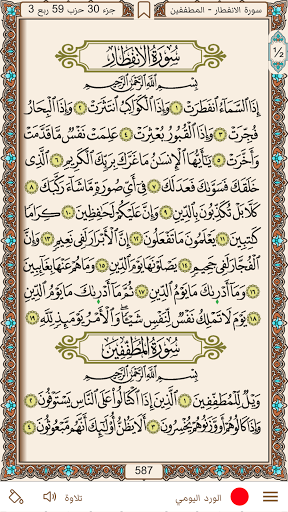 سورة الانفطار - المطففين
جزء 30 حزب 59 ربع 3
½
سُورَةُ الِانفِطَارِ
بِسْمِ اللَّهِ الرَّحْمَٰنِ الرَّحِيمِ
إِذَا السَّمَاءُ انفَطَرَتْ ١ وَإِذَا الْكَوَاكِبُ انتَثَرَتْ ٢ وَإِذَا الْبِحَارُ
فُجِّرَتْ ٣ وَإِذَا الْقُبُورُ بُعْثِرَتْ ٤ عَلِمَتْ نَفْسٌ مَّا قَدَّمَتْ
وَأَخَّرَتْ ٥ يَٰأَيُّهَا الْإِنسَٰنُ مَا غَرَّكَ بِرَبِّكَ الْكَرِيمِ ٦ الَّذِي
خَلَقَكَ فَسَوَّىٰكَ فَعَدَلَكَ ٧ فِي أَيِّ صُورَةٍ مَّا شَاءَ رَكَّبَكَ ٨
كَلَّا بَلْ تُكَذِّبُونَ بِالدِّينِ ٩ وَإِنَّ عَلَيْكُمْ لَحَٰفِظِينَ ١٠ كِرَامًا
كَٰتِبِينَ ١١ يَعْلَمُونَ مَا تَفْعَلُونَ ١٢ إِنَّ الْأَبْرَارَ لَفِي نَعِيمٍ ١٣ وَإِنَّ
الْفُجَّارَ لَفِي جَحِيمٍ ١٤ يَصْلَوْنَهَا يَوْمَ الدِّينِ ١٥ وَمَا هُمْ عَنْهَا بِغَائِبِينَ
١٦ وَمَا أَدْرَىٰكَ مَا يَوْمُ الدِّينِ ١٧ ثُمَّ مَا أَدْرَىٰكَ مَا يَوْمُ الدِّينِ
١٨ يَوْمَ لَا تَمْلِكُ نَفْسٌ لِّنَفْسٍ شَيْئًا وَالْأَمْرُ يَوْمَئِذٍ لِّلَّهِ ١٩
سُورَةُ الْمُطَفِّفِينَ
بِسْمِ اللَّهِ الرَّحْمَٰنِ الرَّحِيمِ
وَيْلٌ لِّلْمُطَفِّفِينَ ١ الَّذِينَ إِذَا اكْتَالُوا عَلَى النَّاسِ يَسْتَوْفُونَ ٢
وَإِذَا كَالُوهُمْ أَو وَّزَنُوهُمْ يُخْسِرُونَ ٣ أَلَا يَظُنُّ أُولَٰئِكَ أَنَّهُم مَّبْعُوثُونَ ٤
587
الورد اليومي
تلاوة